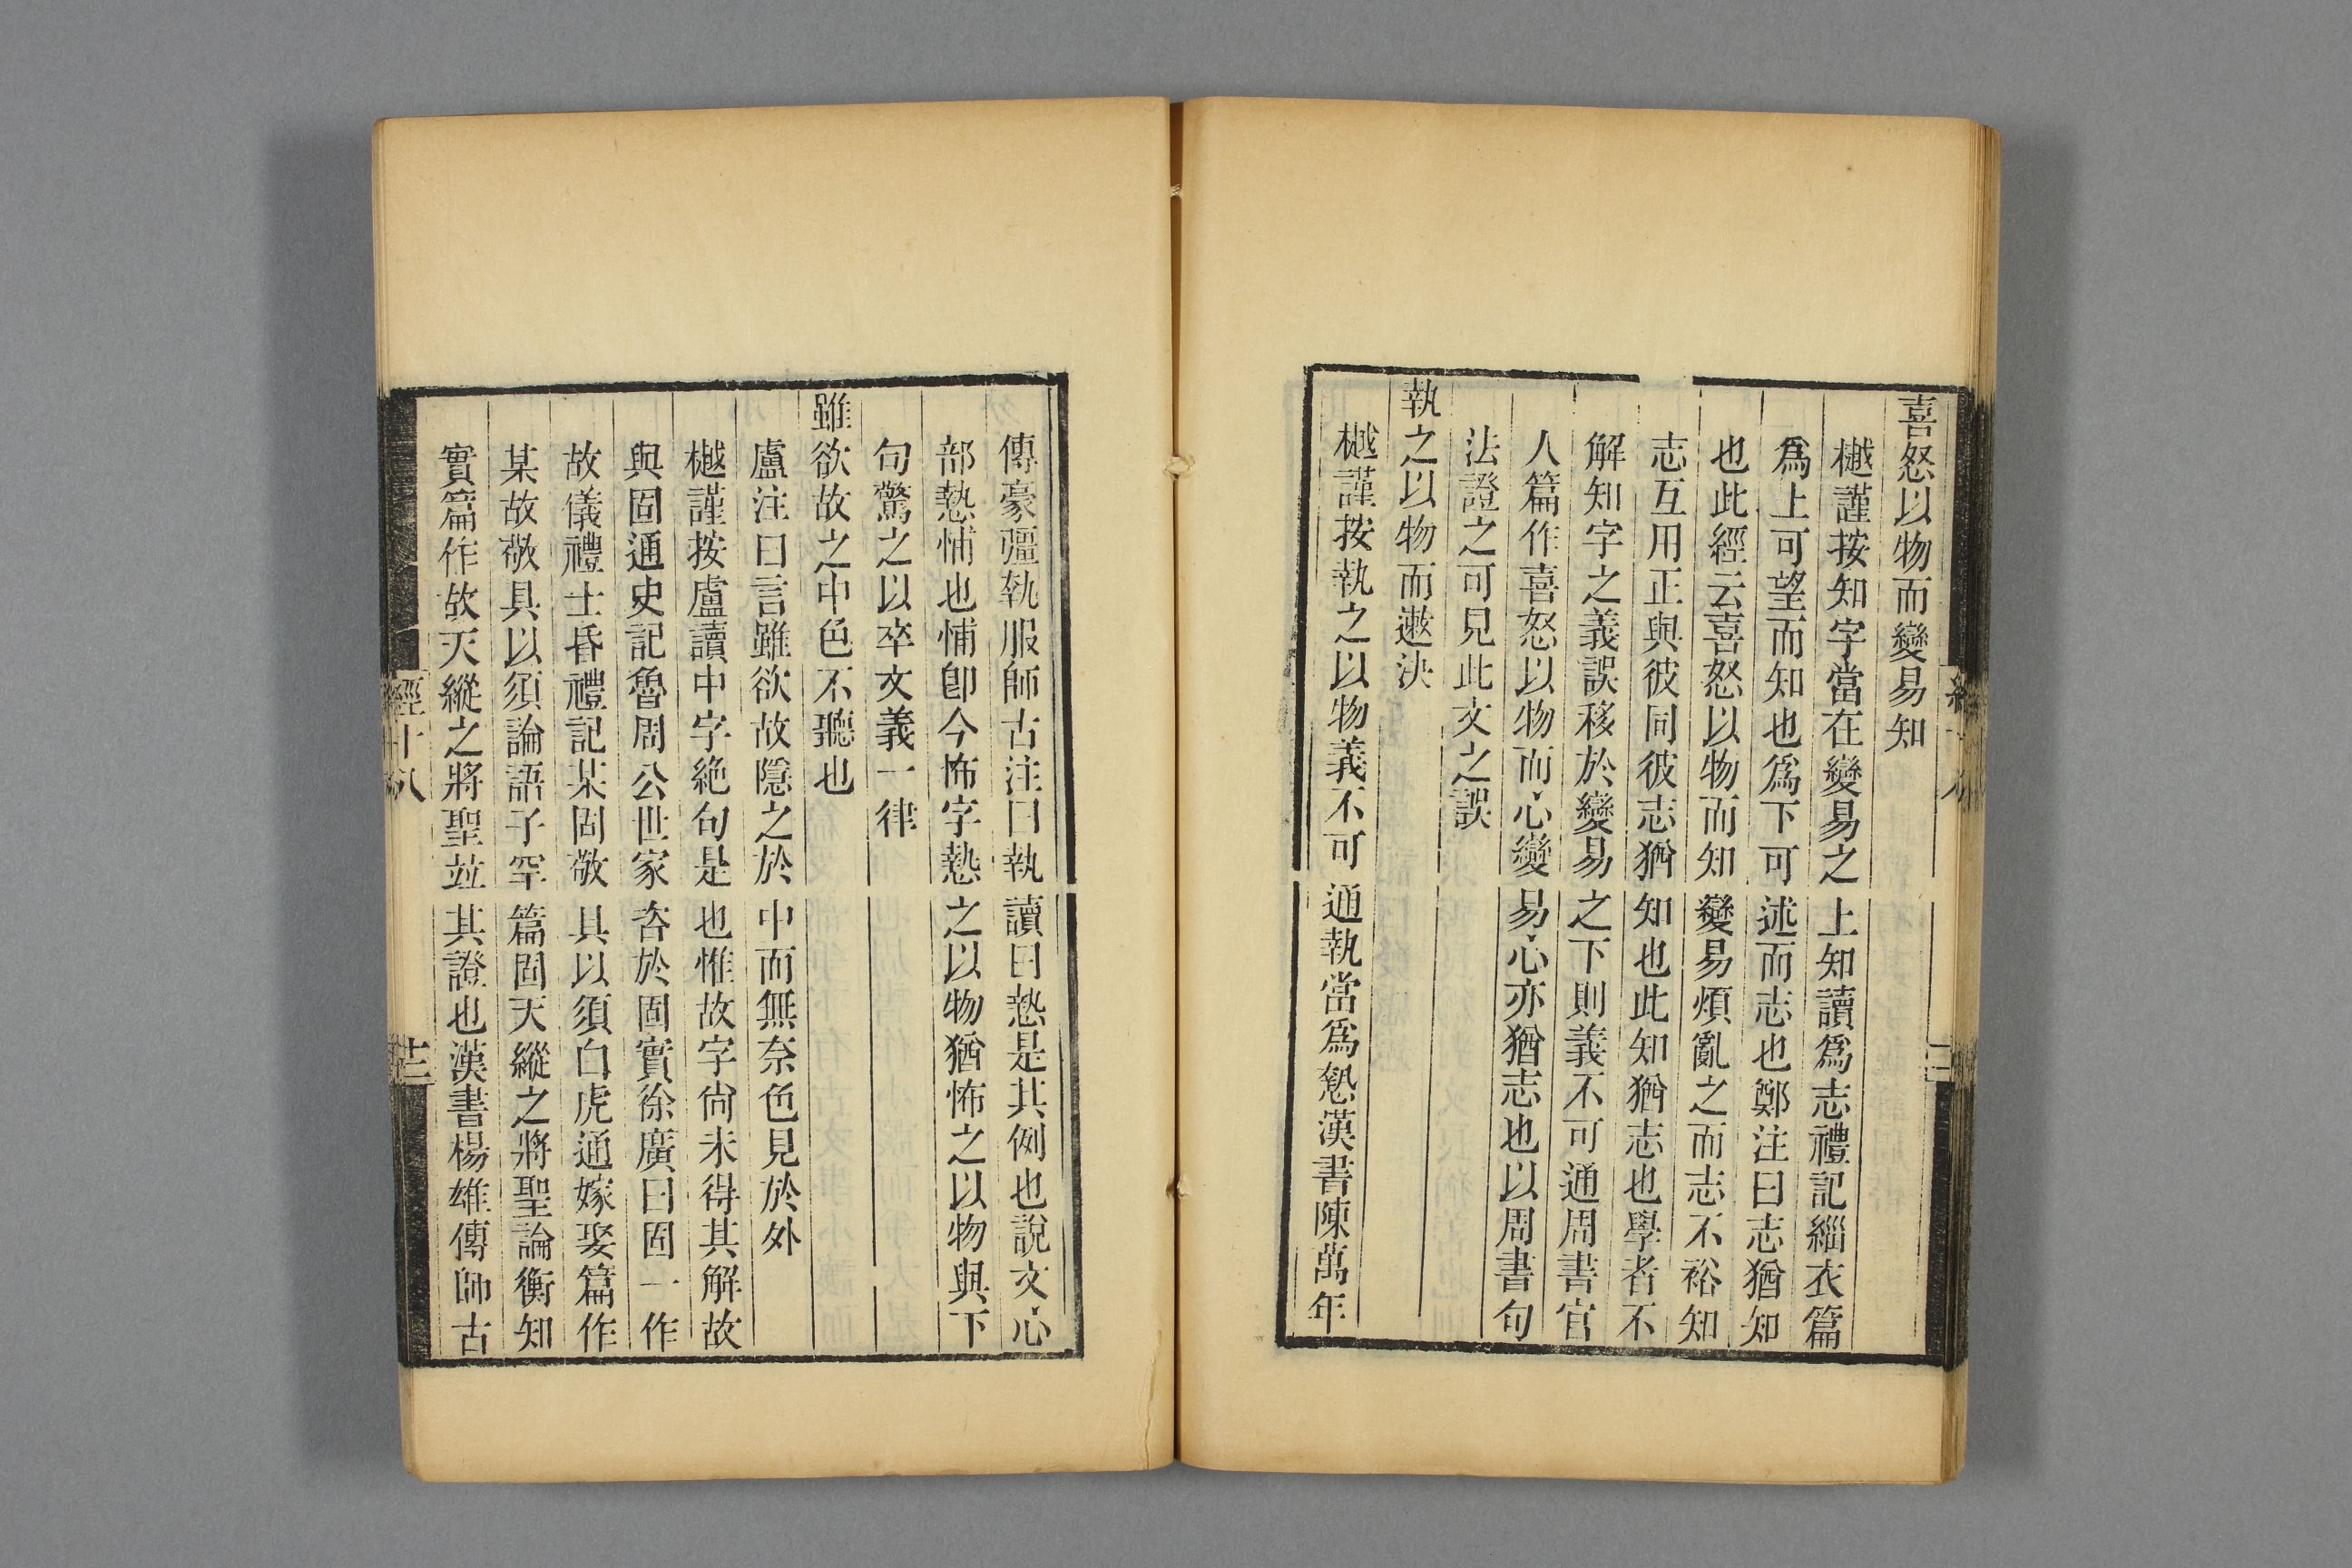 喜怒以物而變易知
樾謹按知字當在變易之上知讀爲志禮記緇衣篇
爲上可望而知也爲下可述而志也鄭注曰志猶知
也此經云喜怒以物而知變易煩亂之而志不裕知
志互用正與彼同彼志猶知也此知猶志也學者不
解知字之義誤移於變易之下則義不可通周書官
人篇作喜怒以物而心變易心亦猶志也以周書句
法證之可見此文之誤
執之以物而遬決
樾謹按執之以物義不可通執當爲慹漢書陳萬年
傳豪彊執服師古注曰執讀曰慹是其例也說文心
部慹悑也悑卽今怖字慹之以物猶怖之以物與下
句驚之以卒文義一律
雖欲故之中色不聽也
盧注曰言雖欲故隱之於中而無奈色見於外
樾謹按盧讀中字絶句是也惟故字尙未得其解故
與固通史記魯周公世家咨於固實徐廣曰固一作
故儀禮士昏禮記某固敬具以須白虎通嫁娶篇作
某故敬具以須論語子罕篇固天縱之將聖論衡知
實篇作故天縱之將聖竝其證也漢書楊雄傳師古
經十八
十二